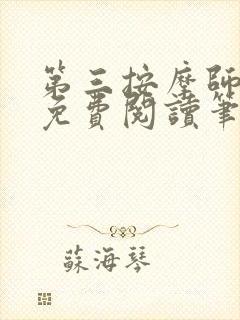 第三按摩師
免費閱讀筆
蘇海琴